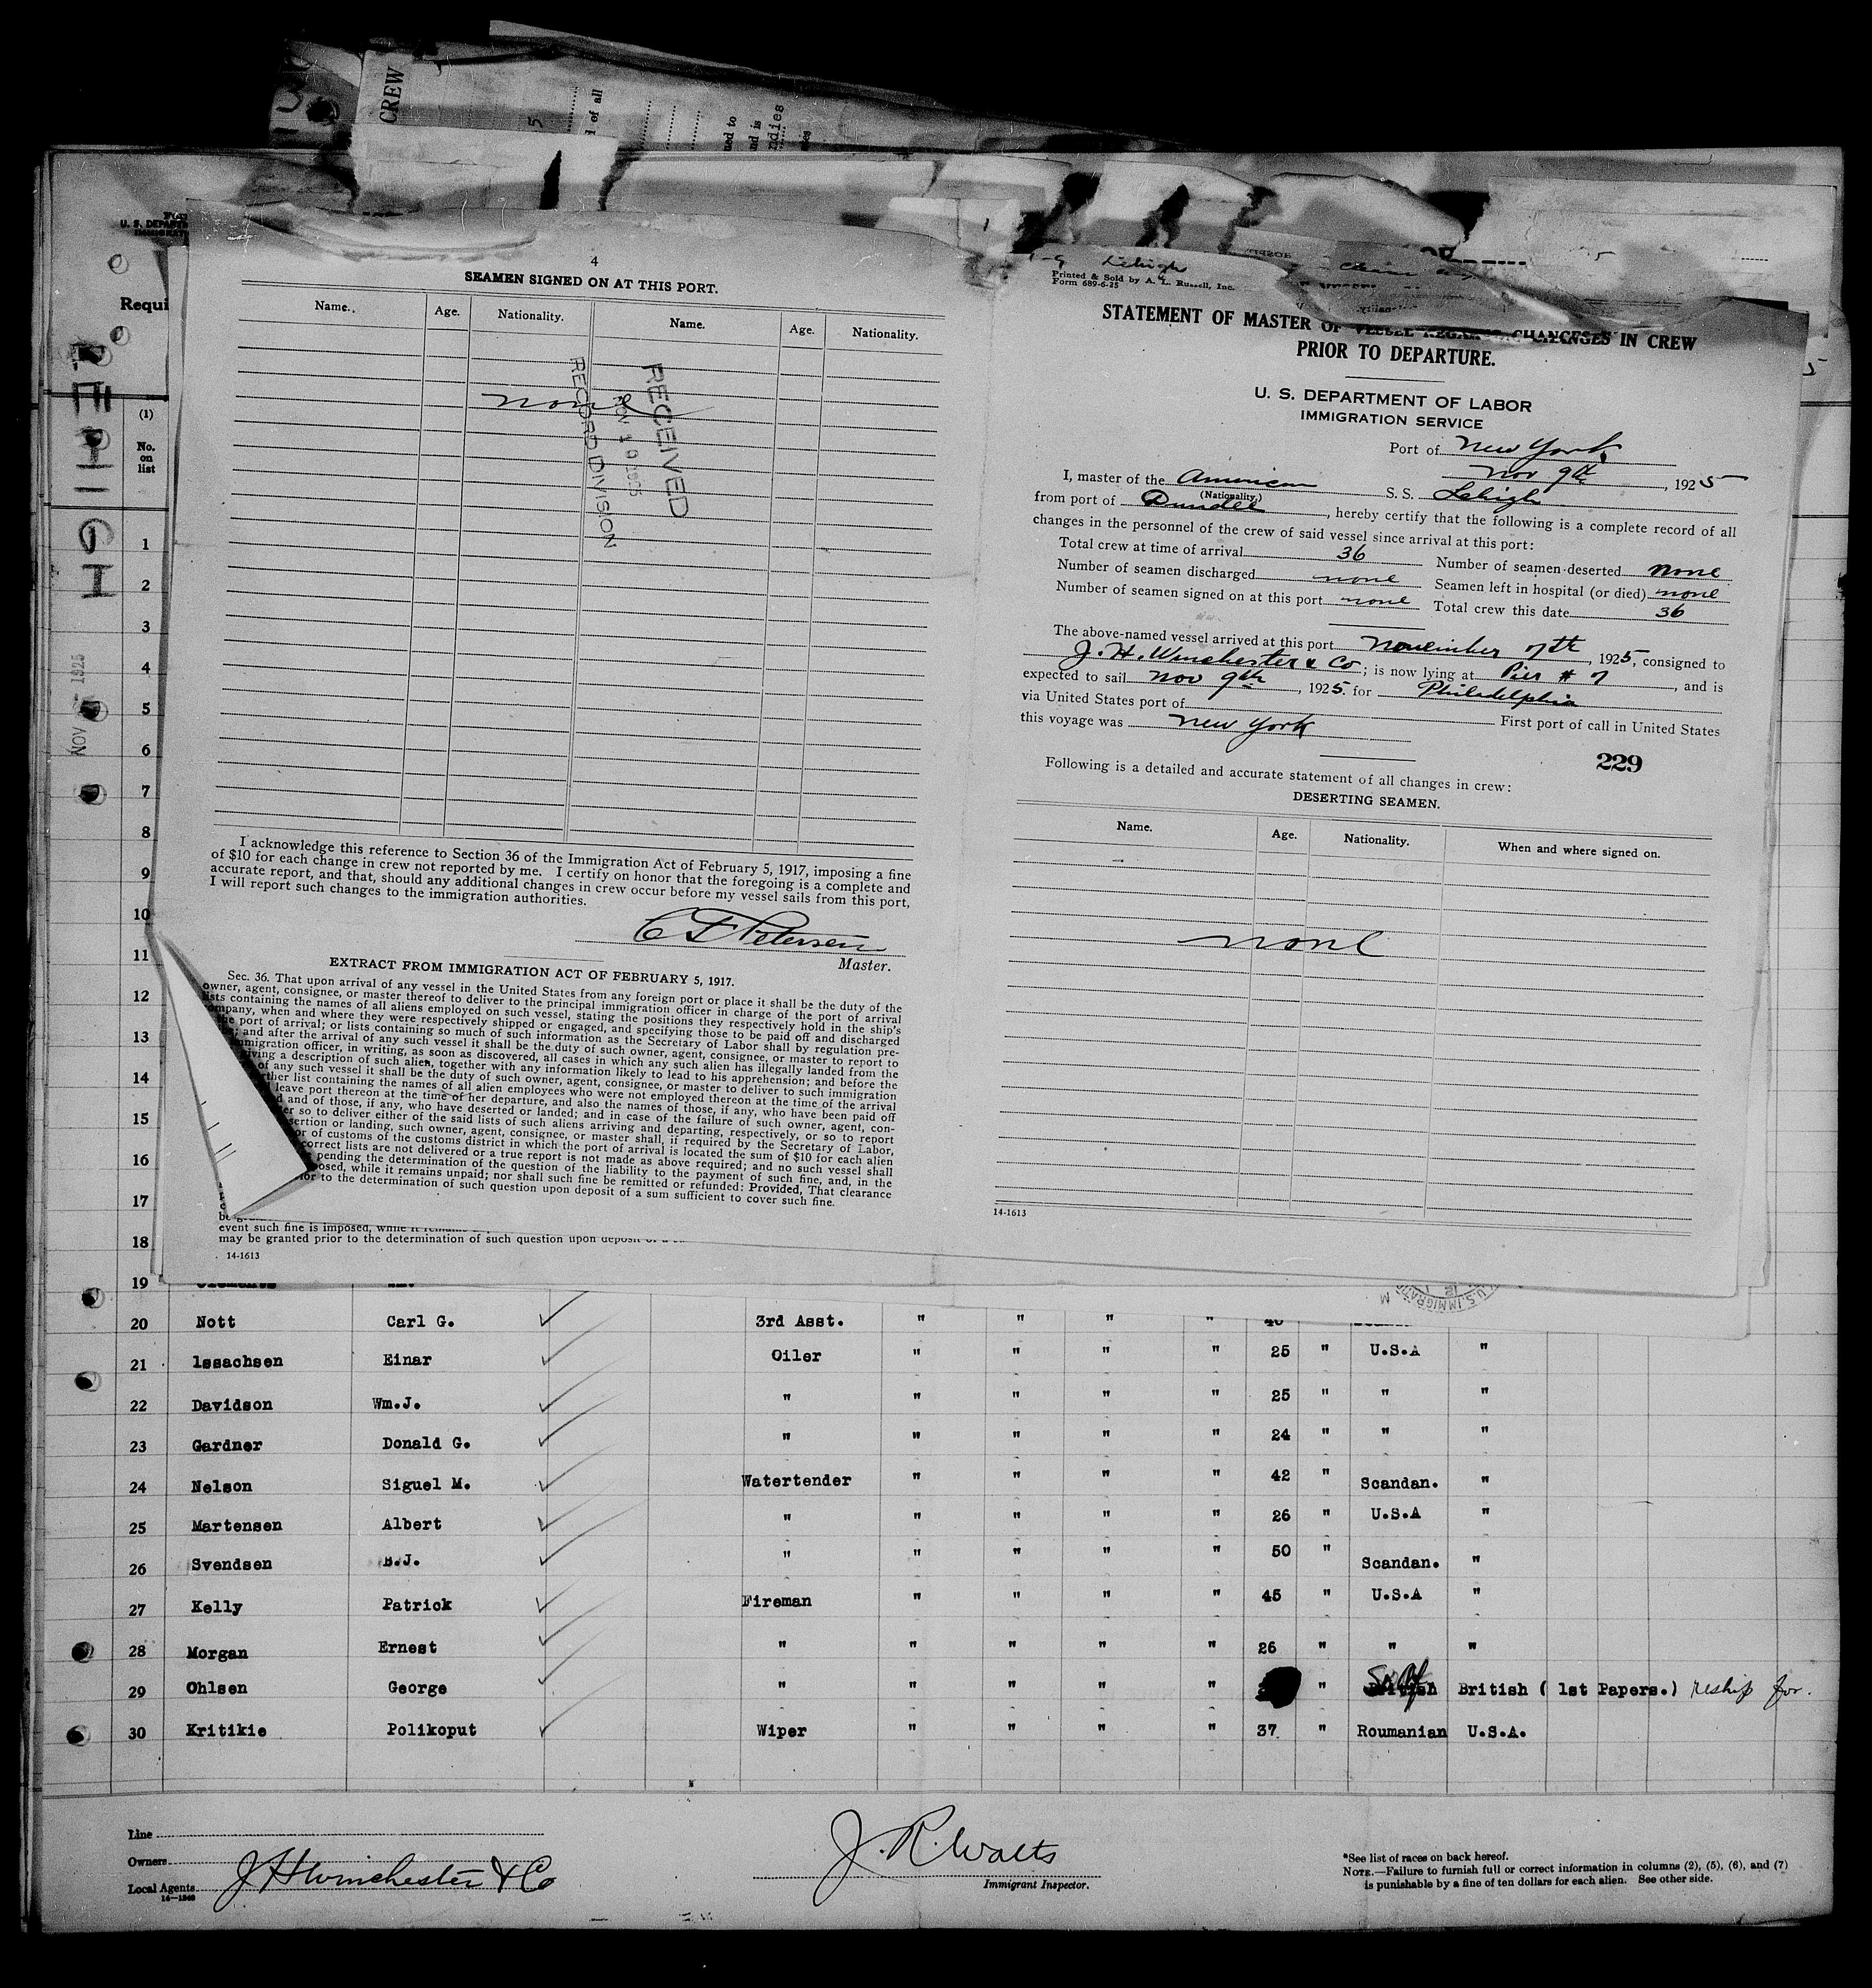 CREW
5
d of all
ned to
nd is
ndies
U. S. DEPART
IMMIGRAT
Requi
(1)
No.
on
list
NOV 1925
1
2
3
4
5
6
7
8
9
10
11
12
13
14
15
16
17
18
19
4
SEAMEN SIGNED ON AT THIS PORT.
Name. Age. Nationality. Name. Age. Nationality.
none
RECEIVED
NOV 10 1925
RECORD DIVISION
I acknowledge this reference to Section 36 of the Immigration Act of February 5, 1917, imposing a fine
of $10 for each change in crew not reported by me. I certify on honor that the foregoing is a complete and
accurate report, and that, should any additional changes in crew occur before my vessel sails from this port,
I will report such changes to the immigration authorities.
C F Petersen
Master.
EXTRACT FROM IMMIGRATION ACT OF FEBRUARY 5, 1917.
Sec. 36. That upon arrival of any vessel in the United States from any foreign port or place it shall be the duty of the
owner, agent, consignee, or master thereof to deliver to the principal immigration officer in charge of the port of arrival
lists containing the names of all aliens employed on such vessel, stating the positions they respectively hold in the ship's
ompany, when and where they were respectively shipped or engaged, and specifying those to be paid off and discharged
the port of arrival; or lists containing so much of such information as the Secretary of Labor shall by regulation pre-
; and after the arrival of any such vessel it shall be the duty of such owner, agent, consignee, or master to report to
mmigration officer, in writing, as soon as discovered, all cases in which any such alien has illegally landed from the
iving a description of such alien, together with any information likely to lead to his apprehension; and before the
of any such vessel it shall be the duty of such owner, agent, consignee, or master to deliver to such immigration
ther list containing the names of all alien employees who were not employed thereon at the time of the arrival
leave port thereon at the time of her departure, and also the names of those, if any, who have been paid off
d and of those, if any, who have deserted or landed; and in case of the failure of such owner, agent, con-
er so to deliver either of the said lists of such aliens arriving and departing, respectively, or so to report
sertion or landing, such owner, agent, consignee, or master shall, if required by the Secretary of Labor,
or of customs of the customs district in which the port of arrival is located the sum of $10 for each alien
correct lists are not delivered or a true report is not made as above required; and no such vessel shall
pending the determination of the question of the liability to the payment of such fine, and, in the
osed, while it remains unpaid; nor shall such fine be remitted or refunded: Provided, That clearance
ior to the determination of such question upon deposit of a sum sufficient to cover such fine.
event such fine is imposed, while it remains
may be granted prior to the determination of such question upon deposit of a
14-1613
Lehigh
Printed & Sold by A. L. Russell, Inc.
Form 689-6-25
STATEMENT OF MASTER OF VESSEL REGARDING CHANGES IN CREW
PRIOR TO DEPARTURE.
U. S. DEPARTMENT OF LABOR
IMMIGRATION SERVICE
Port of New York,
Nov 9th, 1925
I, master of the American S. S. Lehigh
(Nationality.)
from port of Dundee, hereby certify that the following is a complete record of all
changes in the personnel of the crew of said vessel since arrival at this port:
Total crew at time of arrival 36 Number of seamen deserted none
Number of seamen discharged none Seamen left in hospital (or died) none
Number of seamen signed on at this port none Total crew this date 36
The above-named vessel arrived at this port November 7th, 1925, consigned to
J. H. Winchester & Co; is now lying at Pier # 7, and is
expected to sail Nov 9th, 1925. for Philadelphia
via United States port of
First port of call in United States
this voyage was New York
229
Following is a detailed and accurate statement of all changes in crew:
DESERTING SEAMEN.
Name. Age. Nationality. When and where signed on.
none
14-1613
U.S. IMMIGRA
20 Nott Carl G. 3rd Asst. " " " " 40
21 lssachsen Einar Oiler " " " " 25 " U.S.A "
22 Davidson Wm.J. " " " " " 25 " " "
23 Gardner Donald G. " " " " " 24 " " "
24 Nelson Siguel M. Watertender " " " " 42 " Scandan. "
25 Martensen Albert " " " " " 26 " U.S.A "
26 Svendsen B.J. " " " " " 50 " Scandan. "
27 Kelly Patrick Fireman " " " " 45 " U.S.A "
28 Morgan Ernest " " " " " 26 " " "
29 Ohlsen George " " " " " " British British ( 1st Papers.) reship for.
30 Kritikie Polikoput Wiper " " " " 37 " Roumanian U.S.A.
Line
Owners
Local Agents J H Winchester & Co
J. R. Watts
Immigrant Inspector.
*See list of races on back hereof.
NOTE.—Failure to furnish full or correct information in columns (2), (5), (6), and (7)
is punishable by a fine of ten dollars for each alien. See other side.